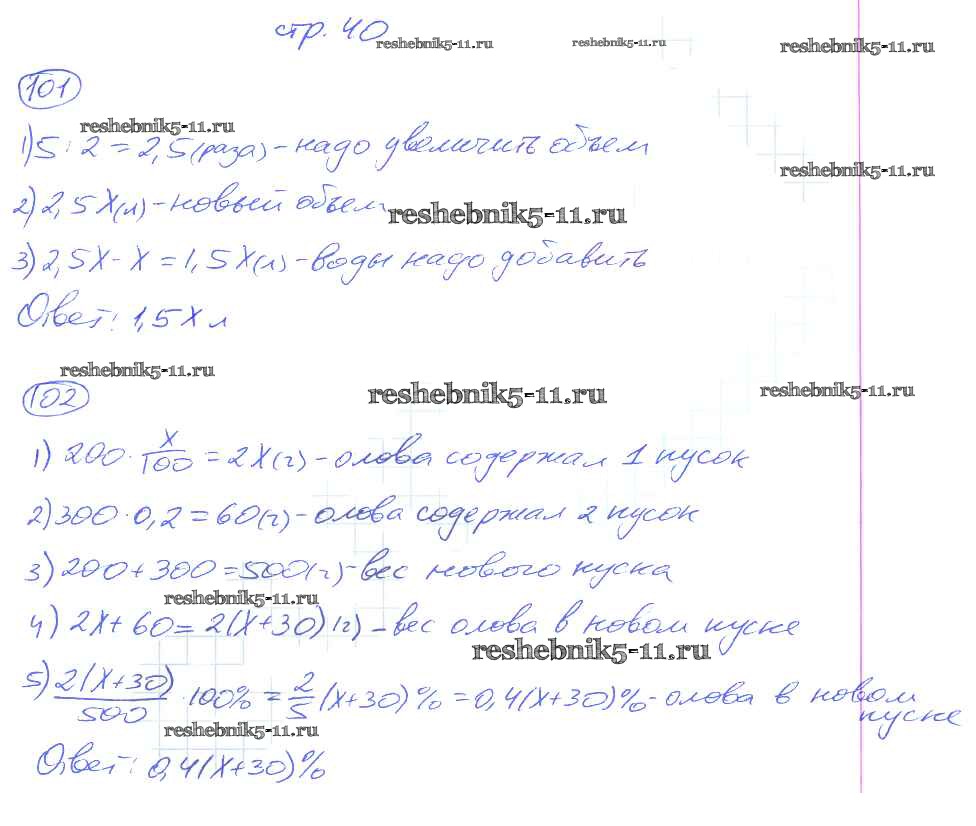 стр. 40
reshebnik5-11.ru reshebnik5-11.ru reshebnik5-11.ru
101
reshebnik5-11.ru
1) 5 : 2 = 2,5 (раза) - надо увеличить объем
reshebnik5-11.ru
2) 2,5x (л) - новый объем
reshebnik5-11.ru
3) 2,5x - x = 1,5x (л) - воды надо добавить
Ответ: 1,5x л
reshebnik5-11.ru
102
reshebnik5-11.ru reshebnik5-11.ru
1) 200 · x/100 = 2x (г) - олова содержал 1 кусок
2) 300 · 0,2 = 60 (г) - олова содержал 2 кусок
3) 200 + 300 = 500 (г) - вес нового куска
reshebnik5-11.ru
4) 2x + 60 = 2(x+30) (г) - вес олова в новом куске
reshebnik5-11.ru
5) 2(x+30)/500 · 100% = 2/5 (x+30)% = 0,4(x+30)% - олова в новом
куске
reshebnik5-11.ru
Ответ: 0,4(x+30)%